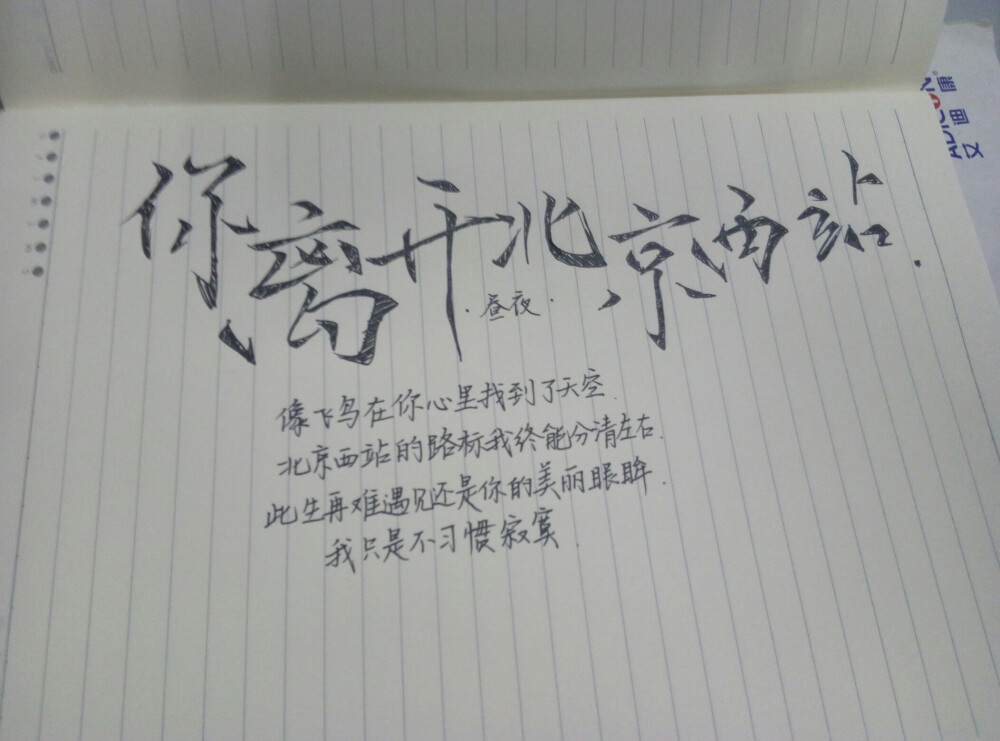 你离开北京西站.
·昼夜·
像飞鸟在你心里找到了天空.
北京西站的路标我终能分清左右.
此生再难遇见还是你的美丽眼眸.
我只是不习惯寂寞.
艾迪康®